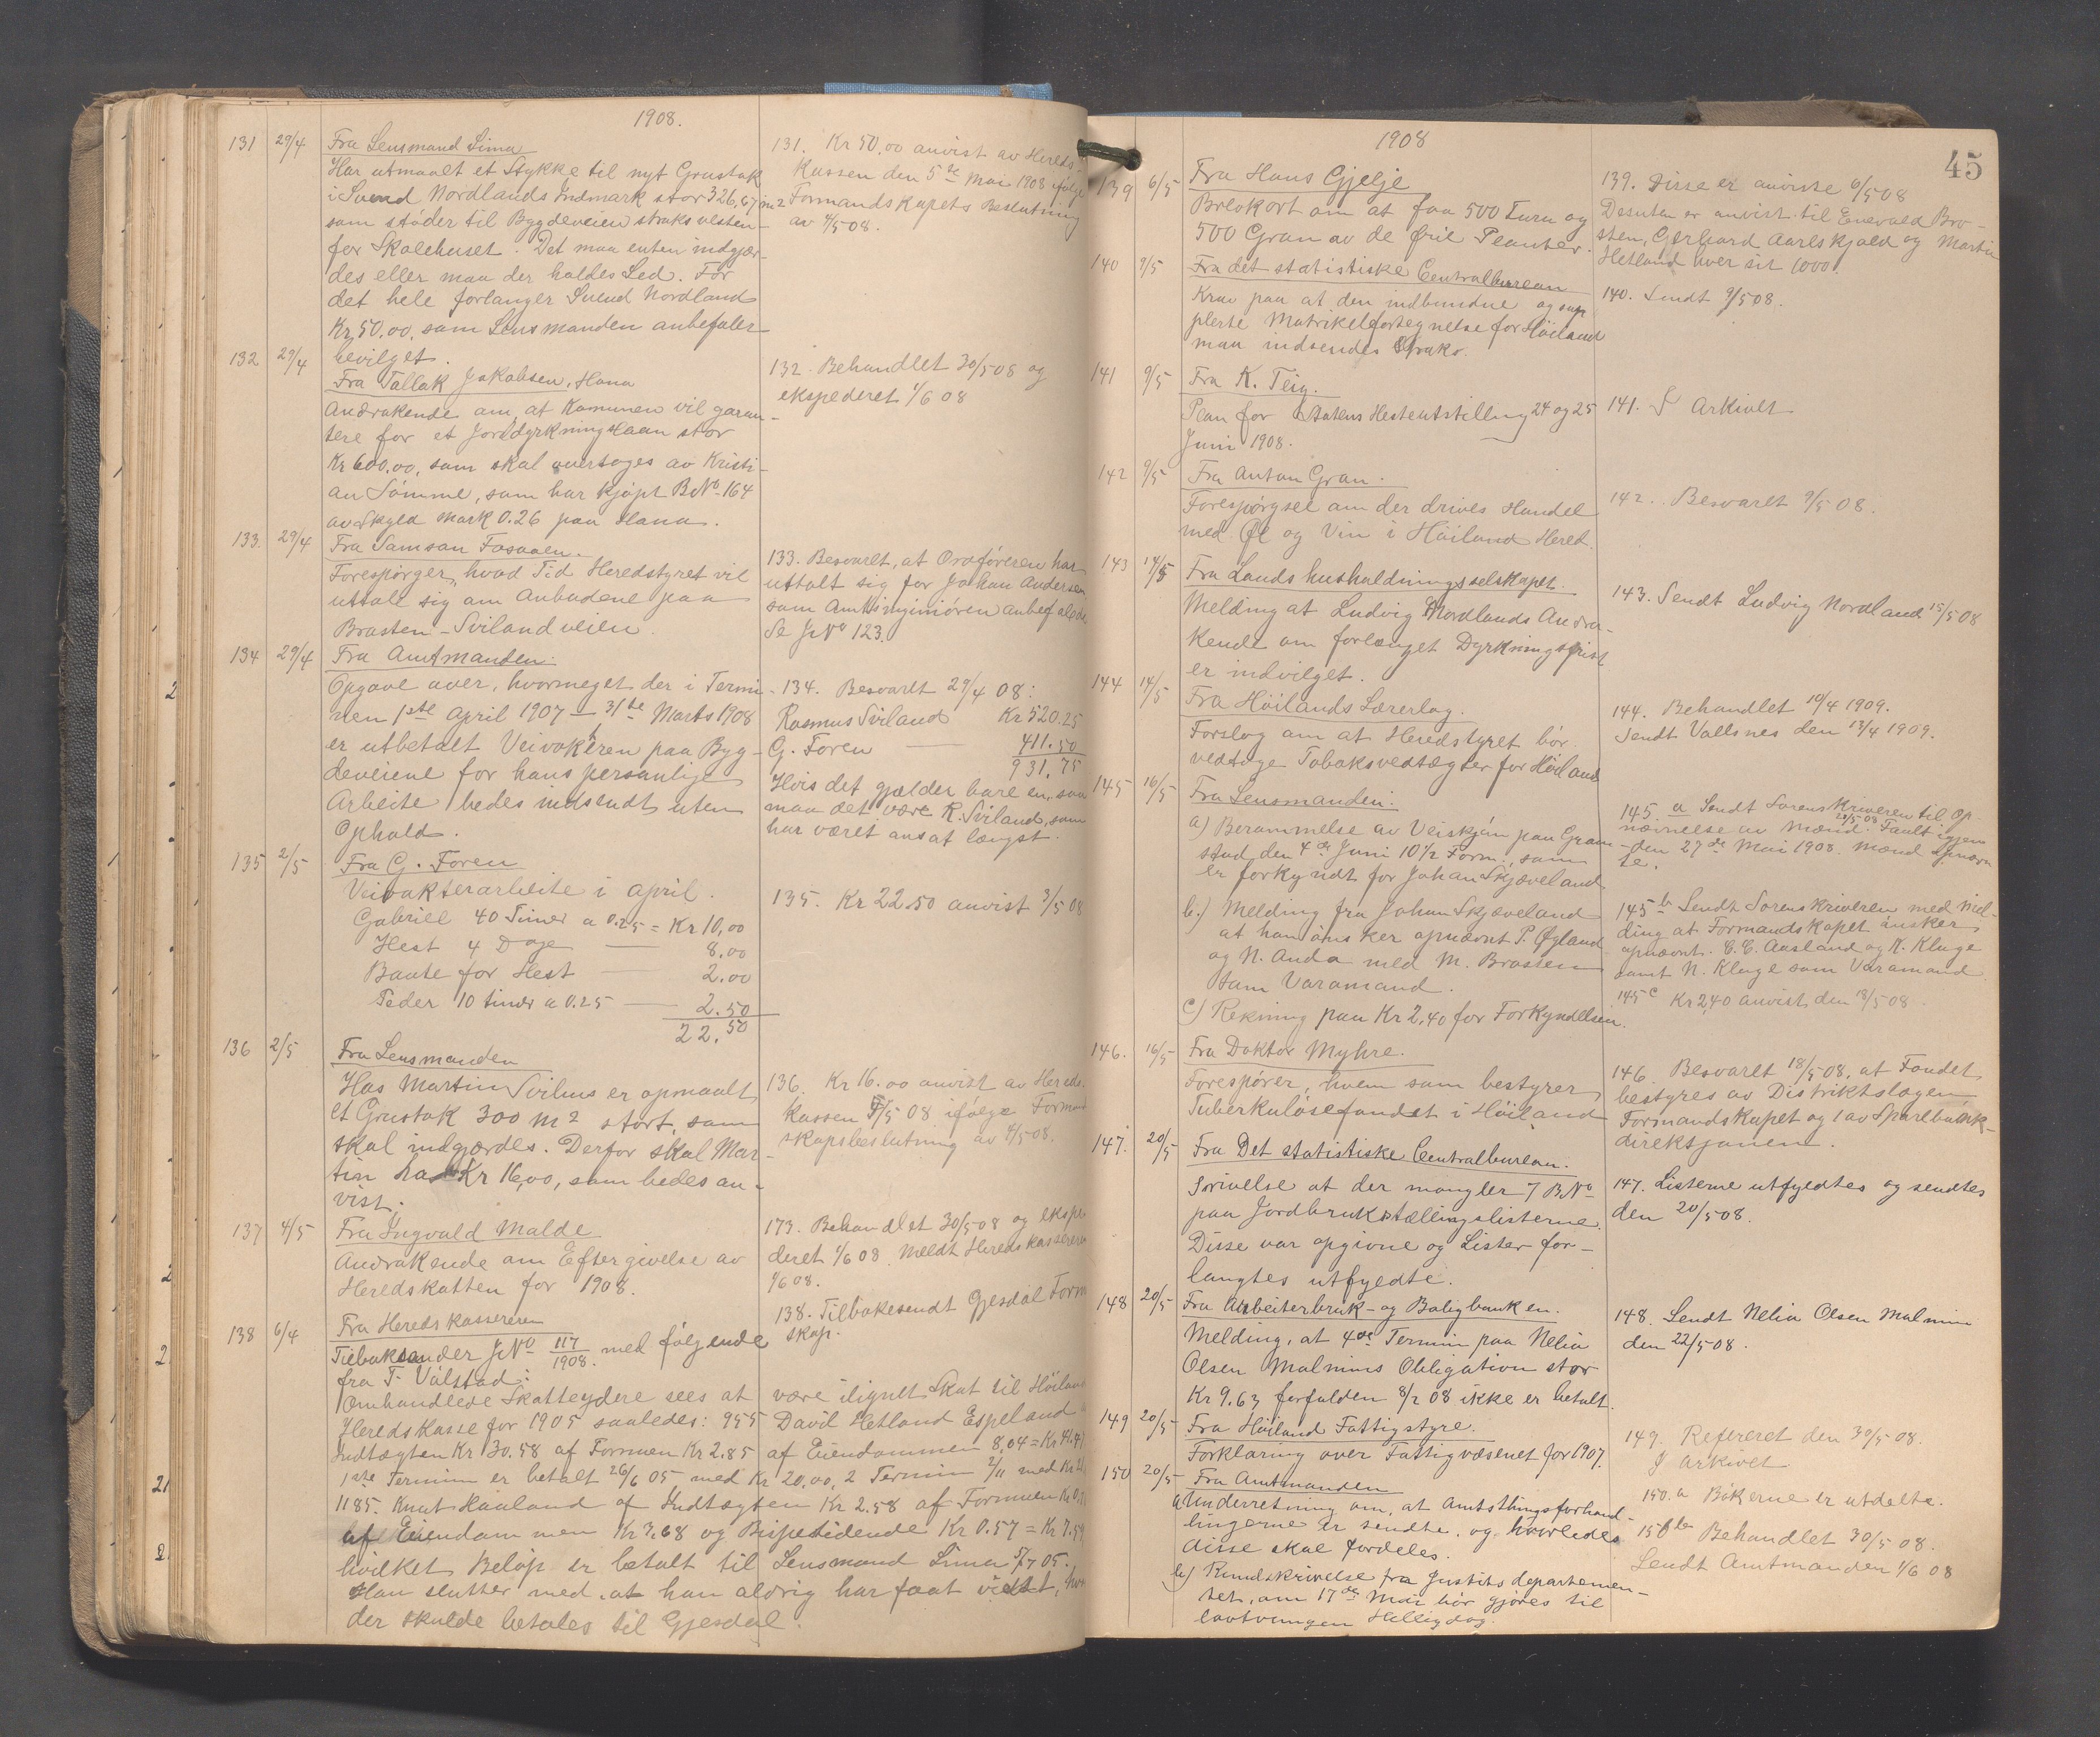 1908.
131 29/4 Fra Lensmand Sima
Har utmaalt et Stykke til nyt Grustak
i Svend Nordlands Indmark stor 326,87 m2
som støder til Bygdeveien straks vesten-
for Skolehuset. Det maa enten indgjær-
des eller maa der holdes Led. For
det hele forlanger Svend Nordland
Kr 50,00, som Lensmanden anbefaler
bevilget.
131. Kr 50.00 anvist av Hereds-
Kassen den 5te Mai 1908 ifølge
Formandskapets Beslutning
av 4/5 08.
132 29/4 Fra Tallak Jakobsen, Hana
Andrakende om, at Komunen vil garan-
tere for et Jorddyrkningslaan stor
Kr 600,00, som skal overtages av Kristi-
an Sømme, som har kjøpt B.No 164
av Skyld Mark 0.26 paa Hana.
132. Behandlet 30/5 08 og
ekspederet 1/6 08
133. 29/4 Fra Samson Fosaaen.
Forespørger, hvad Tid Heredstyret vil
uttale sig om Anbudene paa
Brasten-Sviland veien.
133. Besvaret, at Ordføreren har
uttalt sig for Johan Andersen
som Amtsingeniøren anbefalede
Se J.No 123.
134 29/4 Fra Amtmanden.
Opgave over, hvormeget der i Termi-
nen 1ste April 1907 - 31te Marts 1908
er utbetalt Veivokteren paa Byg-
deveiene for hans personlige
Arbeite bedes indsendt uten
Ophold.
134. Besvaret 29/4 08:
Rasmus Sviland Kr 520.25
G. Foren — 411.50
931.75
Hvis det gjælder bare en, saa
maa det være R. Sviland, som
har været ansat længst.
135 2/5 Fra G. Foren
Veivokterarbeite i April.
Gabriel 40 Timer a 0.25 = Kr 10,00
Hest 4 Dage — 8.00
Baate for Hest — 2.00
Peder 10 timer a 0.25 — 2.50
22.50
135. Kr 22.50 anvist 3/5 08
136 2/5 Fra Lensmanden
Hos Martin Svihus er opmaalt
et Grustak 300 m2 stort, som
skal indgjærdes. Derfor skal Mar-
tin ha Kr 16,00, som bedes an-
vist.
136. Kr 16.00 anvist av Hereds-
kassen 5/5 08 ifølge Formand
skapsbeslutning av 4/5 08.
137 4/5 Fra Ingvald Malde
Andrakende om Eftergivelse av
Heredskatten for 1908.
173. Behandlet 30/5 08 og ekspe
deret 1/6 08. Meldt Heredskassereren
1/6 08.
138 6/4 Fra Heredskassereren
Tilbakesender J.No 117/1908. med følgende
fra T. Válstad:
138. Tilbakesendt Gjesdal Form
skap.
Omhandlede Skatteydere sees at være ilignet Skat til Høiland
Heredskasse for 1905 saaledes: 955 David Hetland Espeland
Indtægten Kr 30.58 af Formuen Kr 2.85 af Eiendommen 8,04 = Kr 41.47
1ste Termin er betalt 26/6 05 med Kr 20,00, 2 Termin 2/11 med Kr 2
1185. Knut Haaland af Indtægten Kr 2.58 af Formuen Kr 0.
af Eiendommen Kr 3,68 og Bispetidende Kr 0.57 = Kr 7.59,
hvilket Beløp er betalt til Lensmand Sima 5/7 05.
Han slutter med, at han aldrig har faat vidst,
der skulde betales til Gjesdal.
1908
45
139 6/5 Fra Hans Gjelje
Brevkort om at faa 500 Furu og
500 Gran av de frie Planter.
139. Disse er anviste 6/5 08
Desuten er anvist til Enevald Bro-
sten, Gerhard Aarlskjold og Martin
Hetland hver sit 1000.
140 9/5 Fra det statistiske Centralbureau
Krav paa at den indbundne og sup
plerte Matrikelfortegnelse for Høiland
maa indsendes straks.
140. Sendt 9/5 08.
141 9/5 Fra K. Teig.
Plan for Statens Hesteutstilling 24 og 25
Juni 1908.
141. I Arkivet
142 9/5 Fra Anton Gran.
Forespørgsel om der drives Handel
med Øl og Vin i Høiland Hered.
142. Besvaret 9/5 08.
143 14/5 Fra Landshusholdningsselskapet.
Melding at Ludvig Nordlands Andra-
kende om forlænget Dyrkningsfrist
er indvilget.
143. Sendt Ludvig Nordland 15/5 08
144 14/5 Fra Høilands Lærerlag.
Forslag om at Heredstyret bør
vedtage Tobaksvedtægter for Høiland
144. Behandlet 10/4 1909.
Sendt Vallsnes den 13/4 1909.
145 16/5 Fra Lensmanden.
a) Berammelse av Veiskjøn paa Gram-
stad den 4de Juni 10 1/2 Form., som
er forkyndt for Johan Skjæveland
145. a Sendt Sorenskriveren til Op-
nævnelse av Mænd. 20/5 08 Faaet igjen
den 27de Mai 1908. Mænd opnævn
te.
b.) Melding fra Johan Skjæveland
at han ønsker opnævnt P. Øgland
og N. Anda med M. Brasten
som Varamand.
145 b Sendt Sorenskriveren med Mel-
ding at Formandskapet ønsker
opnævnt. C. C. Aasland og K. Kluge
samt N. Kluge som Varamand
c) Rekning paa Kr 2,40 for Forkyndelsen.
145 c Kr 2,40 anvist den 18/5 08.
146. 16/5 Fra Doktor Myhre.
Forespører, hvem som bestyrer
Tuberkuløsefondet i Høiland
146. Besvaret 18/5 08, at Fondet
bestyres av Distriktslægen
Formandskapet og 1 av Sparebank-
direksjonen.
147. 20/5 Fra Det statistiske Centralbureau.
Srivelse at der mangler 7 B.No
paa Jordbrukstællingslisterne.
Disse var opgivne og Lister for-
langtes utfyldte.
147. Listerne utfyldtes og sendtes
den 20/5 08.
148 20/5 Fra Arbeiterbruk- og Boligbanken.
Melding, at 4de Termin paa Nelia
Olsen Malmins Obligation stor
Kr 9.63 forfalden 8/2 08 ikke er betalt.
148. Sendt Nelia Olsen Malmin
den 22/5 08.
149 20/5 Fra Høiland Fattigstyre.
Forklaring over Fattigvæsenet for 1907.
149. Refereret den 30/5 08.
I arkivet
150 20/5 Fra Amtmanden
a) Underretning om, at Amtstingsforhand-
lingerne er sendte, og hvorledes
disse skal fordeles.
150. a Bøkerne er utdelte.
b) Rundskrivelse fra Justitsdepartemen-
tet, om 17de Mai bør gjøres til
lovtvungen Helligdag.
150 b Behandlet 30/5 08.
Sendt Amtmanden 1/6 08